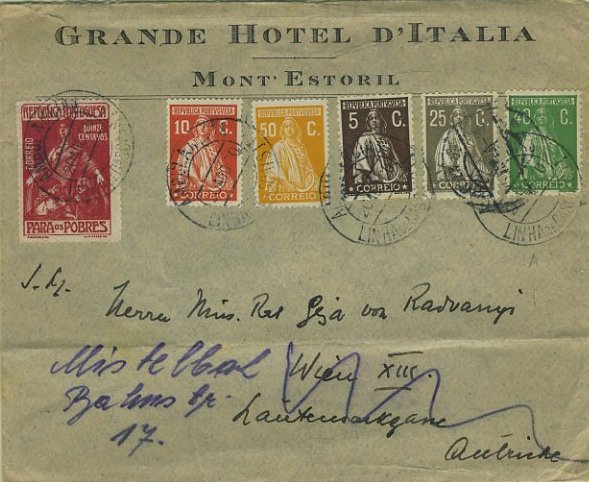 GRANDE HOTEL D'ITALIA
MONT' ESTORIL
REPUBLICA PORTUGUESA
QUINZE CENTAVOS
CORREIO
PARA OS POBRES
REPUBLICA PORTUGUESA
10 C.
CORREIO
REPUBLICA PORTUGUESA
50 C.
CORREIO
REPUBLICA PORTUGUESA
5 C.
CORREIO
REPUBLICA PORTUGUESA
25 C.
CORREIO
REPUBLICA PORTUGUESA
40 C.
CORREIO
LINHA
LINHA
Herrn Min. Rat Geja von Radvanyi
Mistelbach Wien XIII.
Bahnstr. Lautensackgasse
17.
Autriche